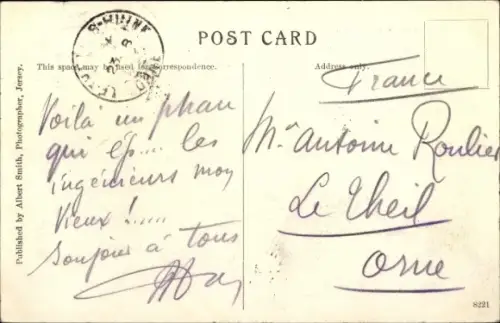 POST CARD
This space may be used for Correspondence.
Address only.
Published by Albert Smith, Photographer, Jersey.
Voilà un phare
qui ép.... les
ingénieurs mon
vieux !.....
à tous
France
Mr Antoine Roulier
Le Theil
Orne
8221